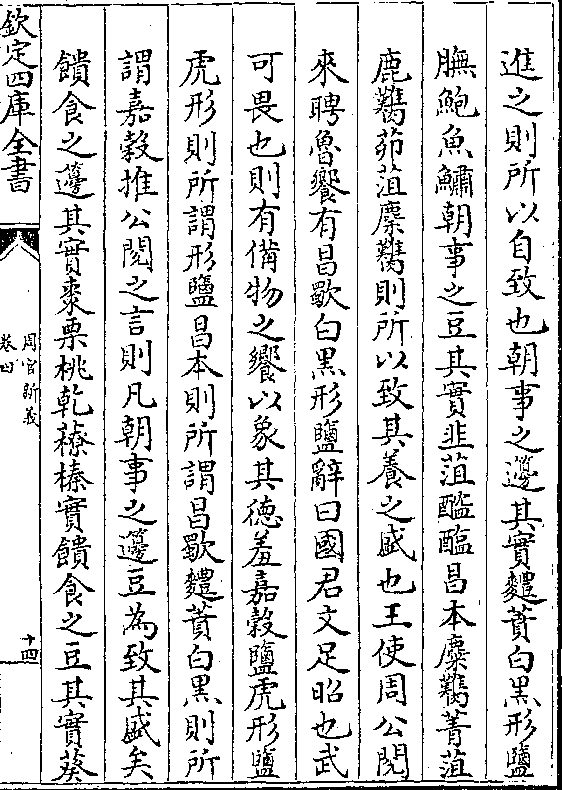 進之則所以自致也朝事之籩其實麷蕡白黑形鹽
膴鮑魚鱐朝事之豆其實韭菹醓醢昌本麋臡菁菹
鹿臡茆菹麇臡則所以致其養之盛也王使周公閱
來聘魯饗有昌歜白黑形鹽辭曰國君文足昭也武
可畏也則有備物之饗以象其徳羞嘉穀鹽虎形鹽
虎形則所謂形鹽昌本則所謂昌歜麷蕡白黑則所
謂嘉穀推公閱之言則凡朝事之籩豆為致其盛矣
饋食之籩其實棗栗桃乾䕩榛實饋食之豆其實葵
欽定四庫全書
周官新義
卷四
十四